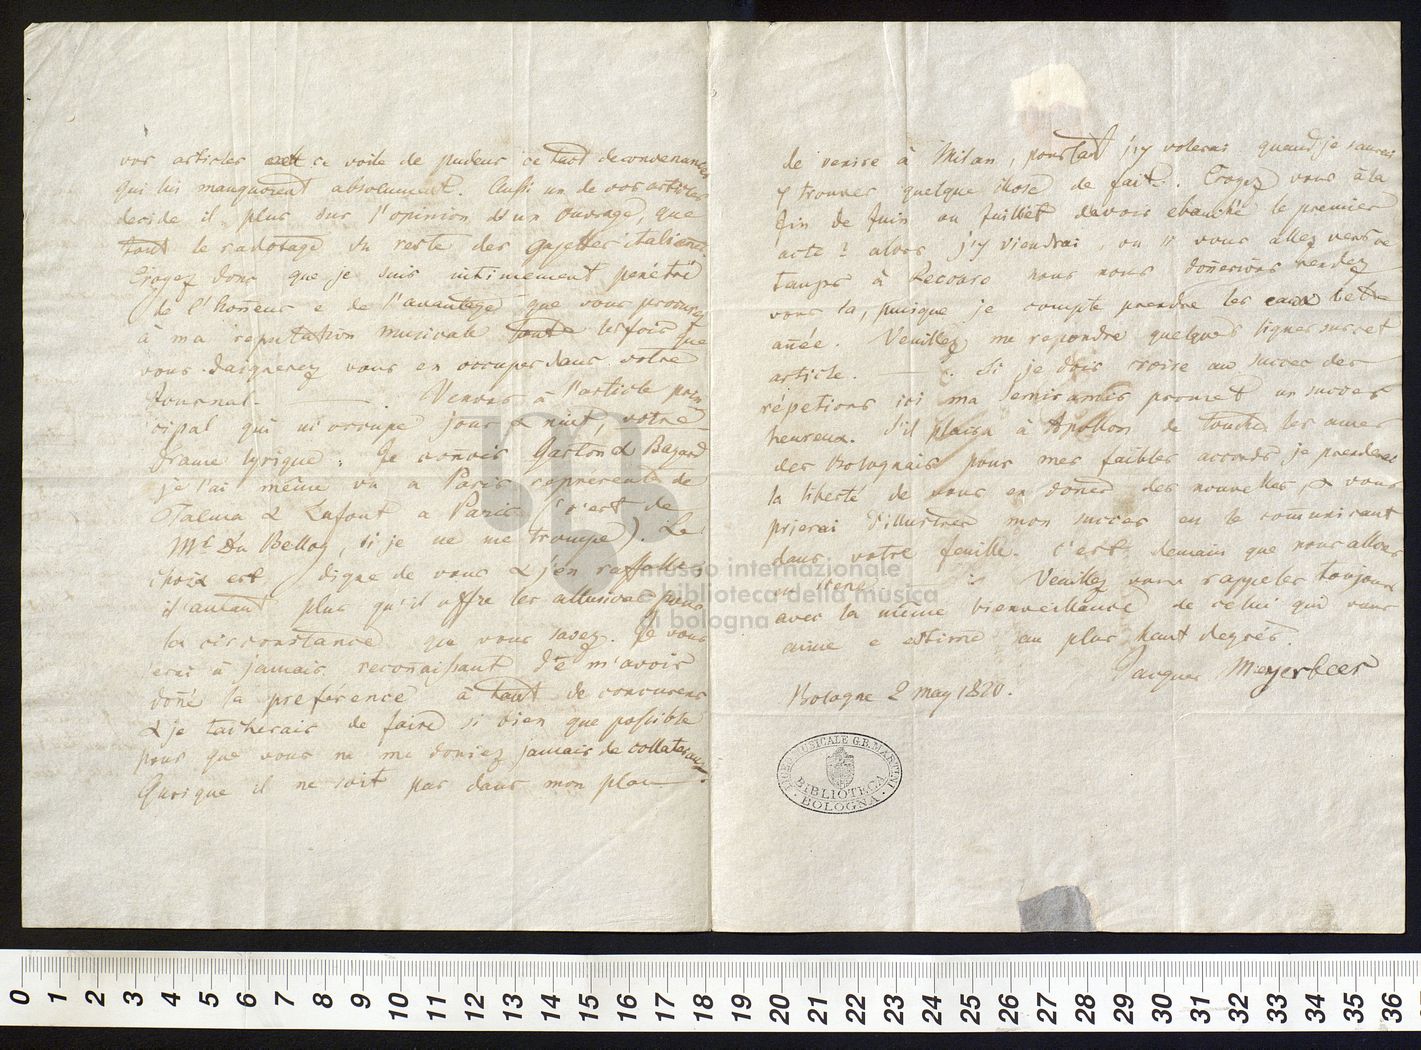 vos articles ce voile de pudeur ce tact de convenances
qui lui manquoient absolument. Aussi un de vos articles
decide il plus sur l'opinion d'un ouvrage, que
tout le radotage du reste des gazettes italiennes.
Croyez donc que je suis intimement penétré
de l'honneur e de l'avantage que vous procurez
à ma reputation musicale les fois que
vous daignerez vous en occuper dans votre
Journal. Venons à l'article prin
cipal qui m'occupe jour & nuit, votre
drame lyrique. Je connois Gaston & Bayard
je l'ai même vu a Paris representé de
Talma & Lafont a Paris (c'est de
Mr. Du Belloy, si je ne me trompe). Le
choix est digne de vous & j'en raffolle,
d'autant plus qu'il offre les allusions pour
la circonstance que vous savez. Je vous
serai à jamais reconnaissant de m'avoir
donné la preference à tant de concurens
& je tacherais de faire si bien que possible
pour que vous ne me donniez jamais de collateraux.
Quoique il ne soit pas dans mon plan
de venire à Milan, pourtant j'y volerai quand je saurai
y trouver quelque chose de fait. Croyez vous à la
fin de Juin ou Juillet d'avoir ebauché le premier
acte? alors j'y viendrai, ou si vous allez vers ce
temps à Recoaro nous nous donnerions rendez
vous la, puisque je compte prendre les eaux cette
année. Veuillez me repondre quelques lignes sur cet
article. Si je dois croire au succes des
répetions ici ma Semiramis promet un succes
heureux. S'il plaira à Apollon de toucher les ames
des Bolognais pour mes faibles accords je prenderai
la liberté de vous en donner des nouvelles, & vous
prierai d'illustrer mon succes en le comunicant
dans votre feuille. C'est demain que nous allons
en scene. Veuillez vous rappeler toujours
avec la même bienveillance de celui qui vous
aime e estime au plus haut degrés.
Jacques Meyerbeer
Bologne 2 may 1820.
LICEO MUSICALE G.B. MARTINI
BIBLIOTECA
BOLOGNA
museo internazionale
e biblioteca della musica
di bologna
0 1 2 3 4 5 6 7 8 9 10 11 12 13 14 15 16 17 18 19 20 21 22 23 24 25 26 27 28 29 30 31 32 33 34 35 36